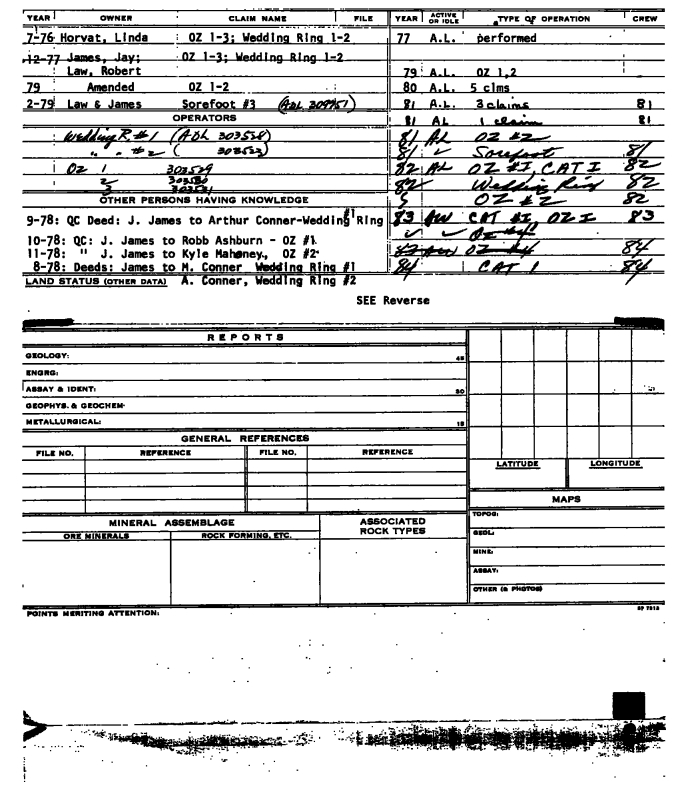 YEAR OWNER CLAIM NAME FILE YEAR ACTIVE OR IDLE TYPE OF OPERATION CREW
7-76 Horvat, Linda OZ 1-3; Wedding Ring 1-2 77 A.L. performed
12-77 James, Jay; OZ 1-3; Wedding Ring 1-2
Law, Robert 79 A.L. OZ 1,2
79 Amended OZ 1-2 80 A.L. 5 clms
2-79 Law & James Sorefoot #3 (ADL 309951) 81 A.L. 3 claims 81
OPERATORS 81 AL 1 claim 81
Wedding R. #1 (ADL 303528) 81 AL OZ #2
" . #2 ( ) 81 ✓ Sorefoot 81
OZ 1 303529 82 AL OZ #I, CAT I 82
2 303530 82 Wedding Ring 82
3 303531 OZ #2 82
OTHER PERSONS HAVING KNOWLEDGE
9-78: QC Deed: J. James to Arthur Conner-Wedding Ring #1 83 AW CAT #I, OZ I 83
10-78: QC: J. James to Robb Ashburn - OZ #1 ✓ ✓
11-78: " J. James to Kyle Mahoney, OZ #2 83 AW OZ 84
8-78: Deeds: James to M. Conner Wedding Ring #1 84 CAT 1 84
LAND STATUS (OTHER DATA) A. Conner, Wedding Ring #2
SEE Reverse
REPORTS
GEOLOGY: 45
ENGRG:
ASSAY & IDENT: 30
GEOPHYS. & GEOCHEM-
METALLURGICAL: 15
GENERAL REFERENCES
FILE NO. REFERENCE FILE NO. REFERENCE
LATITUDE LONGITUDE
MAPS
MINERAL ASSEMBLAGE ASSOCIATED ROCK TYPES
ORE MINERALS ROCK FORMING, ETC.
TOPOG:
GEOL:
MINE:
ASSAY:
OTHER (& PHOTOS)
POINTS MERITING ATTENTION: SP 7313